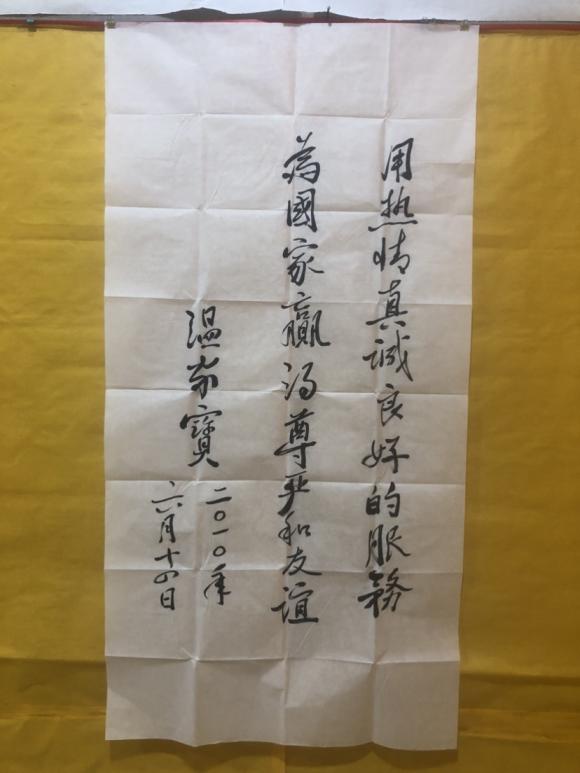 用热情真诚良好的服務
為國家贏得尊严和友谊
温家寶
二〇一〇年
六月十四日